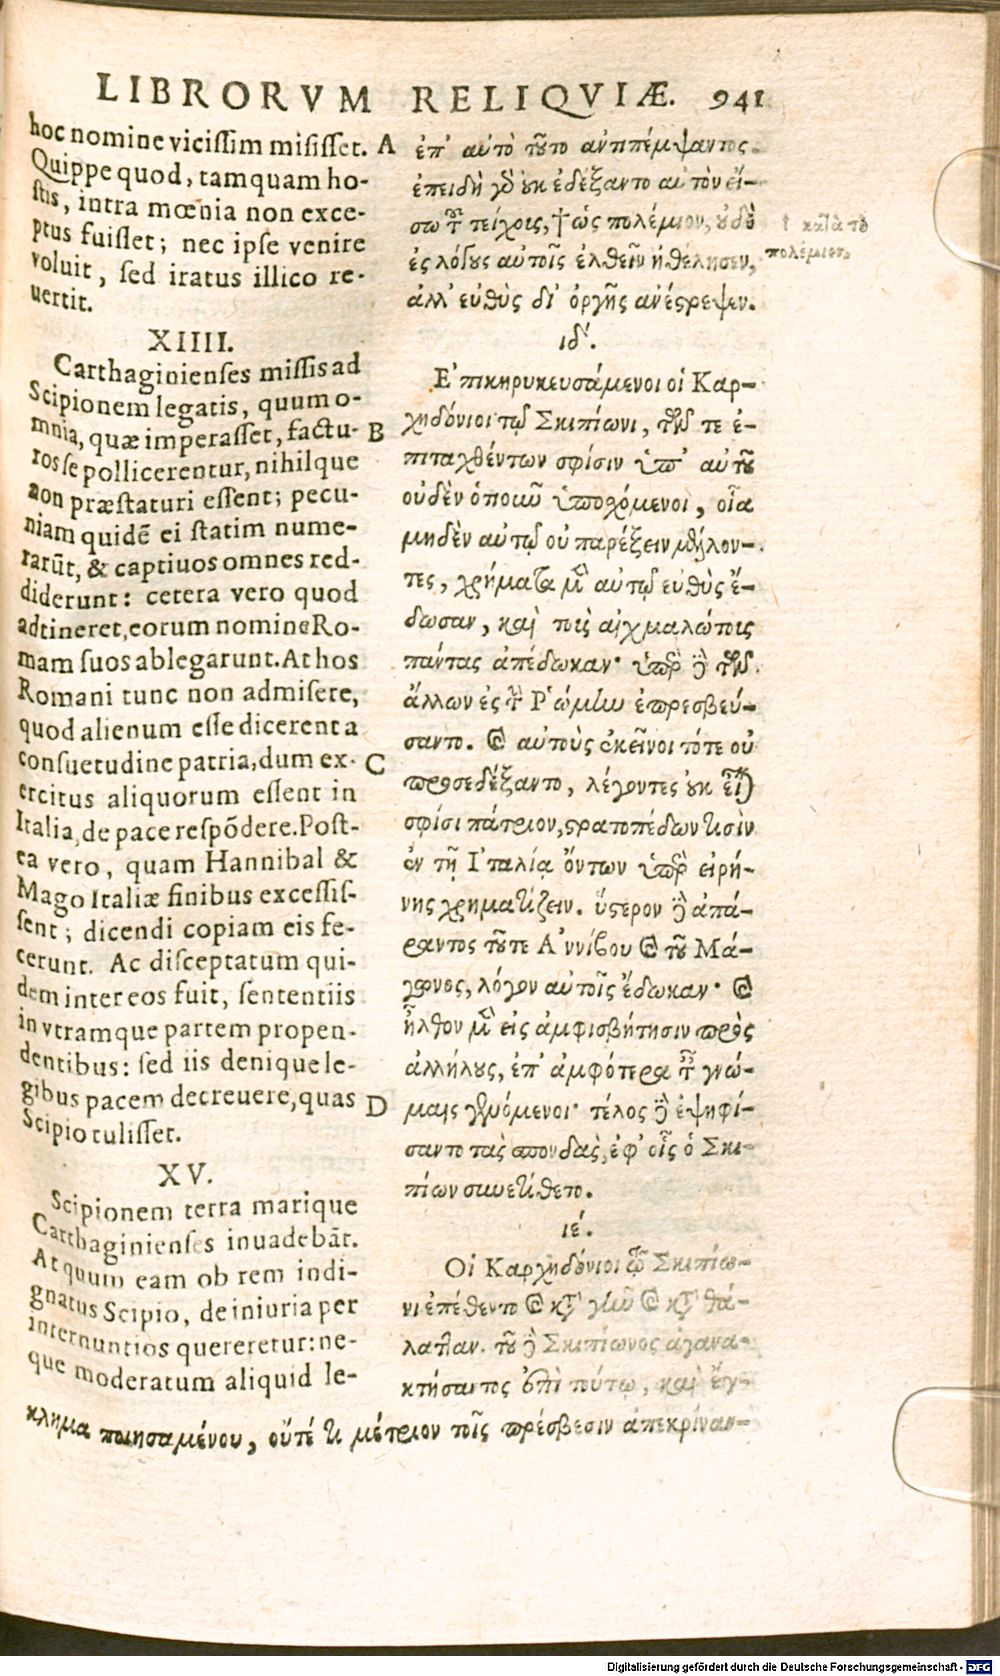 LIBRORVM RELIQVIÆ. 941
hoc nomine vicissim misisset. A
Quippe quod, tamquam ho-
stis, intra mœnia non exce-
ptus fuisset; nec ipse venire
voluit, sed iratus illico re-
uertit.
XIIII.
Carthaginienses missis ad
Scipionem legatis, quum o-
mnia, quæ imperasset, factu- B
ros se pollicerentur, nihilque
non præstaturi essent; pecu-
niam quidē ei statim nume-
rarūt, & captiuos omnes red-
diderunt: cetera vero quod
adtineret, eorum nomine Ro-
mam suos ablegarunt. At hos
Romani tunc non admisere,
quod alienum esse dicerent a
consuetudine patria, dum ex- C
ercitus aliquorum essent in
Italia, de pace respōdere. Post-
ea vero, quam Hannibal &
Mago Italiæ finibus excessis-
sent; dicendi copiam eis fe-
cerunt. Ac disceptatum qui-
dem inter eos fuit, sententiis
in vtramque partem propen-
dentibus: sed iis denique le-
gibus pacem decreuere, quas D
Scipio tulisset.
XV.
Scipionem terra marique
Carthaginienses inuadebāt.
At quum eam ob rem indi-
gnatus Scipio, de iniuria per
internuntios quereretur: ne-
que moderatum aliquid le-
ἐπ' αὐτὸ τοῦτο ἀντιπέμψαντος.
ἐπειδὴ γὸ οὐκ ἐδέξαντο αὐτὸν εἴ-
σω τοῦ τείχοις, † ὡς πολέμιον, οὐδὲ
ἐς λόγους αὐτοῖς ἐλθεῖν ἠθέλησεν,
ἀλλ' εὐθὺς δι' ὀργῆς ἀνέστρεψεν.
† κατὰ τὸ
πολέμιον.
ιδ´.
Ἐπικηρυκευσάμενοι οἱ Καρ-
χηδόνιοι τῷ Σκιπίωνι, τῶν τε ἐ-
πιταχθέντων σφίσιν ὑπ' αὐτοῦ
οὐδὲν ὁποιοῦ ὑποσχόμενοι, οἷα
μηδὲν αὐτῷ οὐ παρέξειν μέλλον-
τες, χρήματα μὲν αὐτῷ εὐθὺς ἔ-
δωσαν, καὶ τοὶς αἰχμαλώτοις
πάντας ἀπέδωκαν· ὑπὲρ δὲ τῶν
ἄλλων ἐς τὴν Ῥώμην ἐπρεσβεύ-
σαντο. καὶ αὐτοὺς ἐκεῖνοι τότε οὐ
προσεδέξαντο, λέγοντες οὐκ εἶναι
σφίσι πάτριον, στρατοπέδων τισὶν
ἐν τῇ Ἰταλίᾳ ὄντων ὑπὲρ εἰρή-
νης χρηματίζειν. ὕστερον δὲ ἀπά-
ραντος τοῦτε Ἀννίβου καὶ τοῦ Μά-
γωνος, λόγον αὐτοῖς ἔδωκαν· καὶ
ἦλθον μὲν εἰς ἀμφισβήτησιν πρὸς
ἀλλήλους, ἐπ' ἀμφότερα ταῖς γνώ-
μαις γενόμενοι· τέλος δὲ ἐψηφί-
σαντο τὰς σπονδὰς, ἐφ' οἷς ὁ Σκι-
πίων συνετίθετο.
ιέ.
Οἱ Καρχηδόνιοι τῷ Σκιπίω-
νι ἐπέθεντο καὶ κατὰ γῆν καὶ κατὰ θά-
λατταν. τοῦ δὲ Σκιπίωνος ἀγανα-
κτήσαντος ἐπὶ τούτῳ, καὶ ἔγ-
κλημα ποιησαμένου, οὔτέ τι μέτριον τοῖς πρέσβεσιν ἀπεκρίναν-
Digitalisierung gefördert durch die Deutsche Forschungsgemeinschaft - DFG